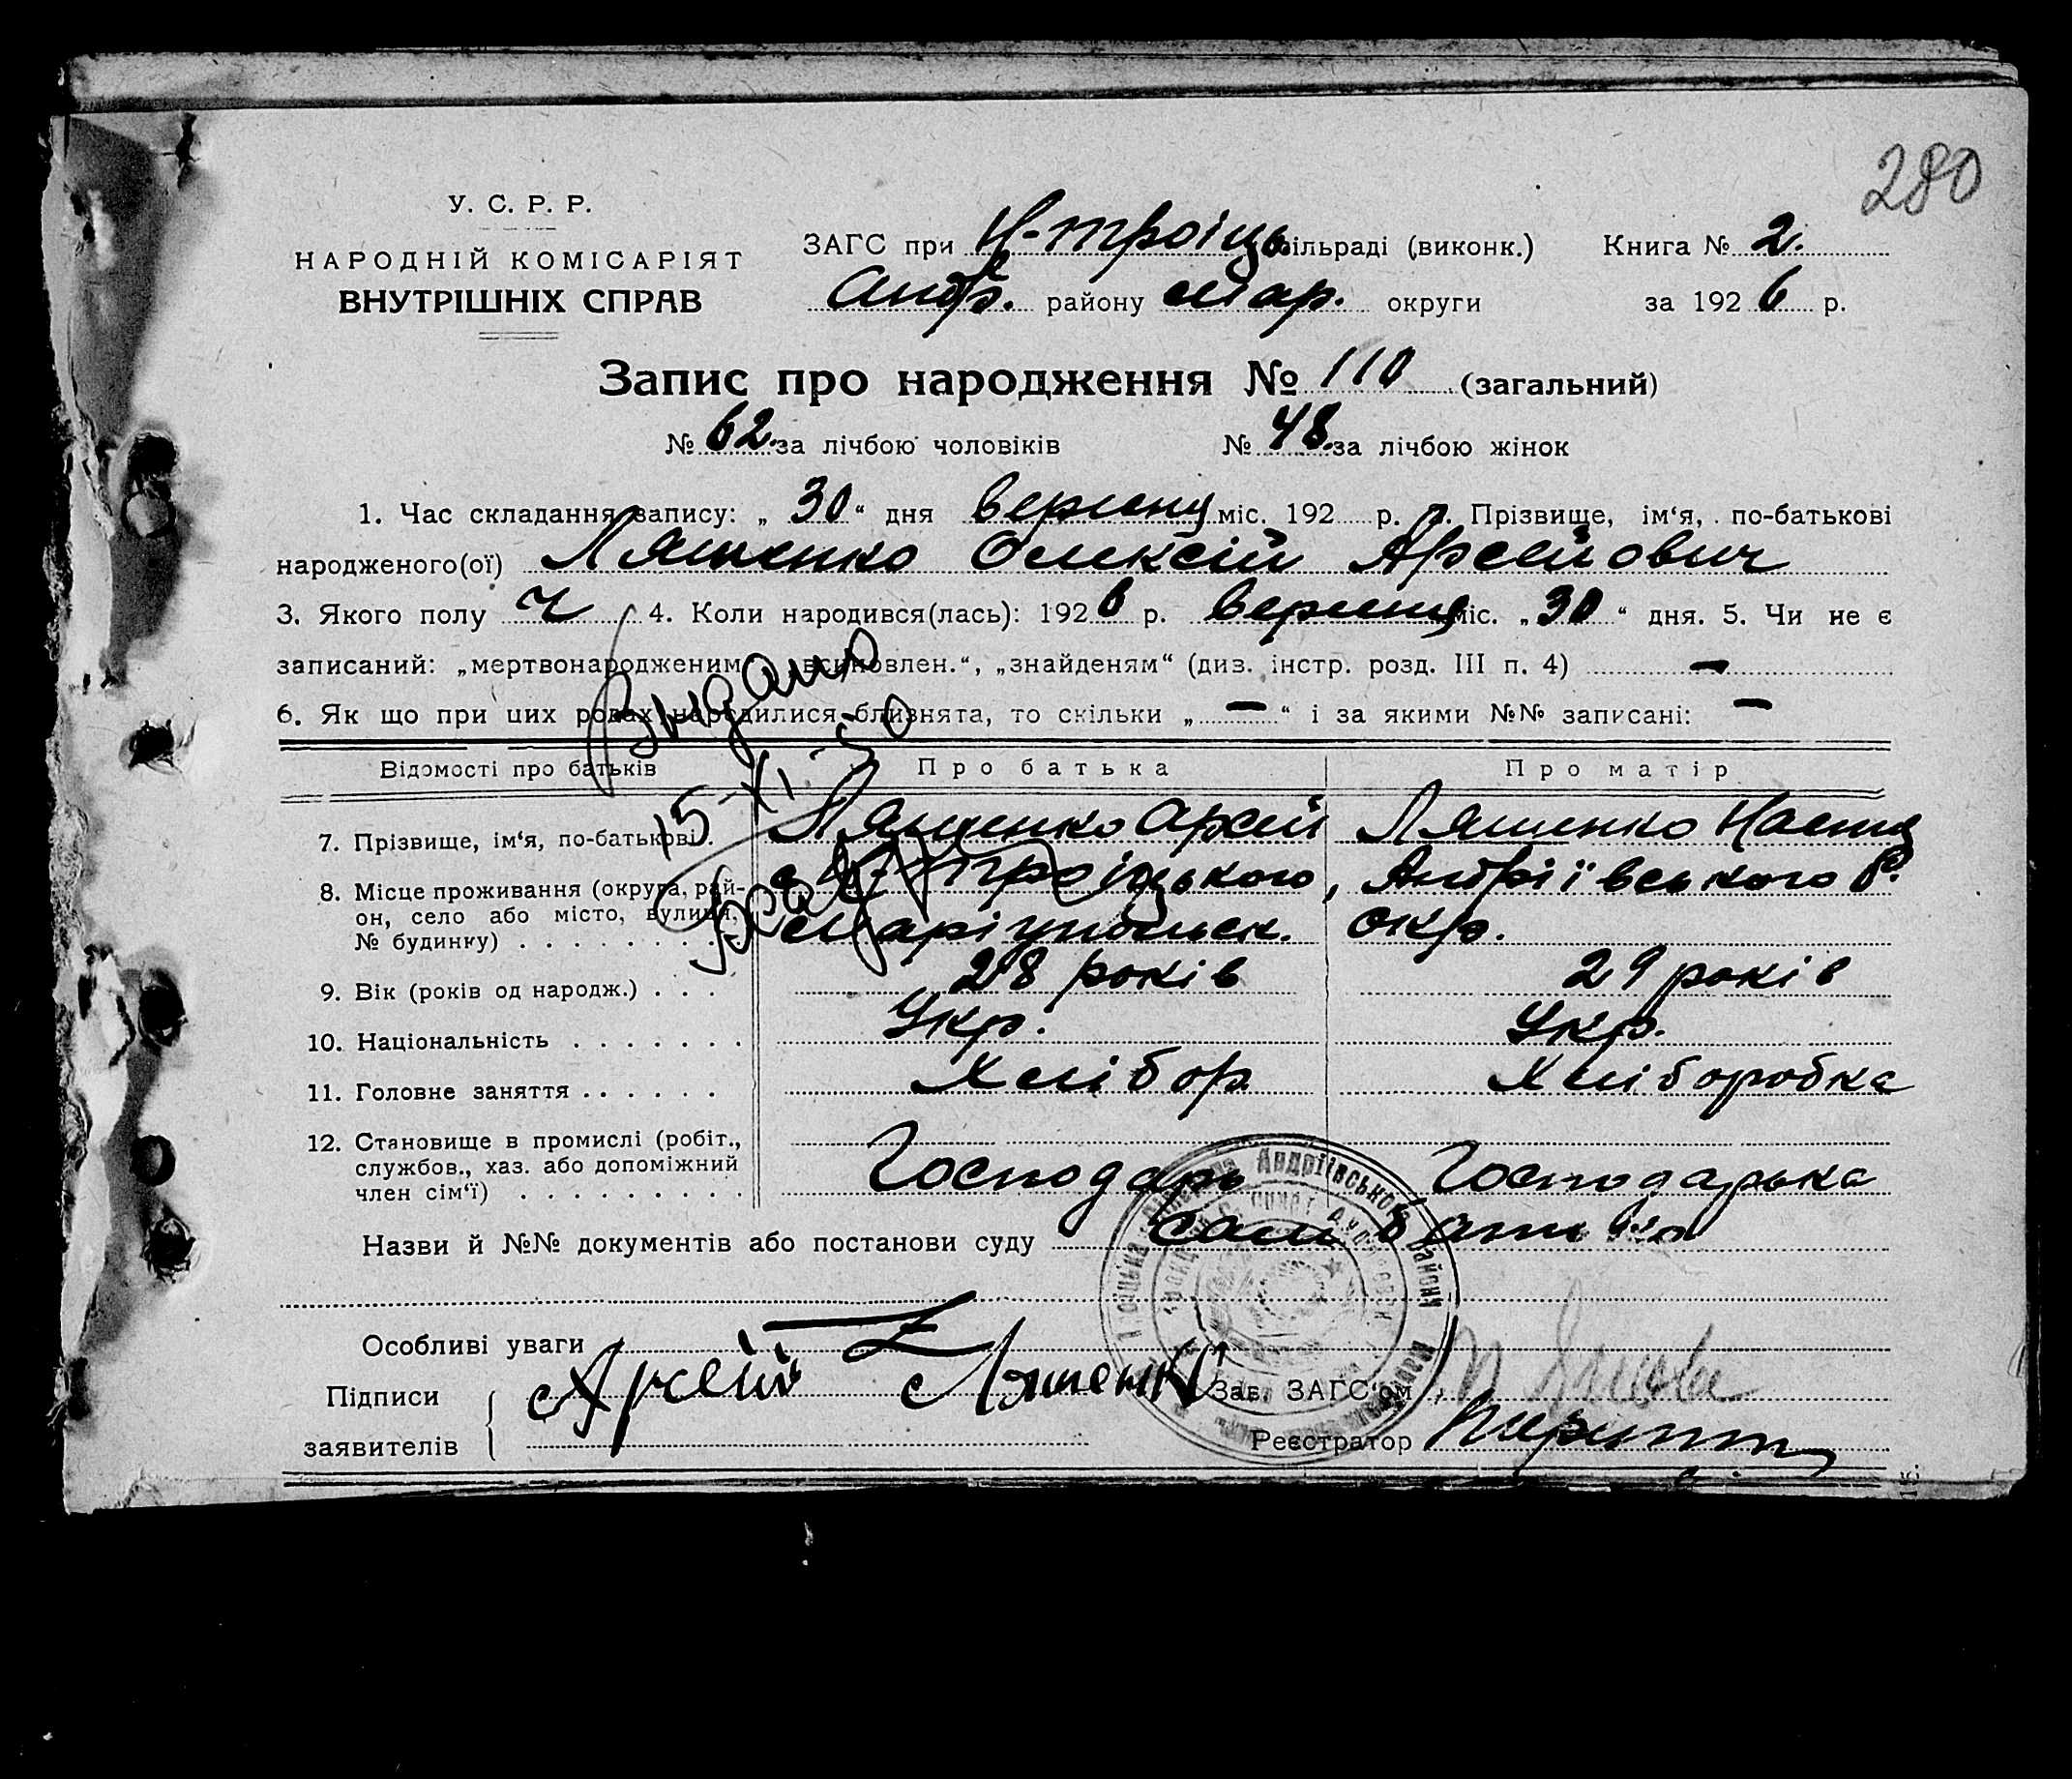 280
У. С. Р. Р.
НАРОДНІЙ КОМІСАРІЯТ
ВНУТРІШНІХ СПРАВ
ЗАГС при Н-Троіць. сільраді (виконк.) Книга № 2.
Андр. району Мар. округи за 1926 р.
Запис про народження № 110 (загальний)
№ 62. за лічбою чоловіків № 48. за лічбою жінок
1. Час складання запису: „ 30 “ дня вересня міс. 192 р. 2. Прізвище, ім‘я, по-батькові
народженого(ої) Ляшенко Олексій Арсейович
3. Якого полу ч 4. Коли народився(лась): 1926 р. вересня міс. „ 30 “ дня. 5. Чи не є
записаний: „мертвонародженим“, „всиновлен.“, „знайденям“ (див. інстр. розд. III п. 4) —
6. Як що при цих родах народилися близнята, то скільки „ — “ і за якими №№ записані: —
Видано
15 XI 50
Відомості про батьків Про батька Про матір
7. Прізвище, ім‘я, по-батькові. Ляшенко Арсей Ляшенко Настя
8. Місце проживання (округа, рай-
он, село або місто, вулиця,
№ будинку) . . . . . . . .
с. Н-Троіцького, Андріївського р.
Маріупольск. окр.
9. Вік (років од народж.) . . . 28 років 29 років
10. Національність . . . . . . . Укр. Укр.
11. Головне заняття . . . . . . Хлібор. Хліборобка
12. Становище в промислі (робіт.,
службов., хаз. або допоміжний
член сім‘ї) . . . . . . . . .
Господарь Господарька
Назви й №№ документів або постанови суду сам батько
Особливі уваги
Підписи
заявителів
Арсей Ляшенко
Зав. ЗАГС‘ом
Реєстратор
Андріївського району